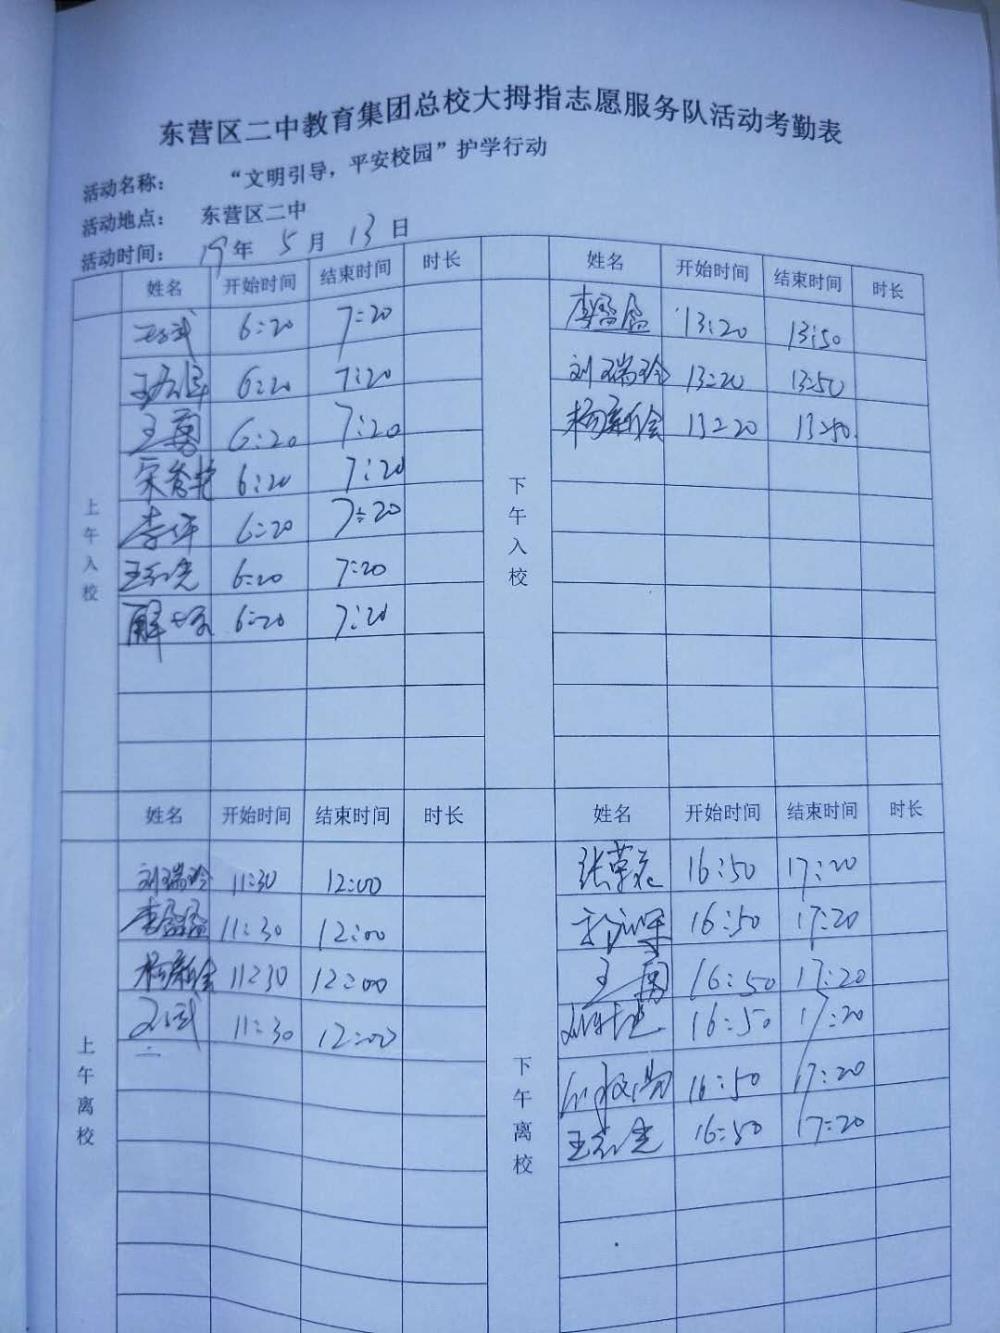 东营区二中教育集团总校大拇指志愿服务队活动考勤表
活动名称： “文明引导，平安校园”护学行动
活动地点： 东营区二中
活动时间： 19年 5月 13日
姓名 开始时间 结束时间 时长
上午入校
6:20 7:20
6:20 7:20
王勇 6:20 7:20
6:20 7:20
李萍 6:20 7:20
6:20 7:20
6:20 7:20
姓名 开始时间 结束时间 时长
下午入校
李盈盈 13:20 13:50
刘瑞玲 13:20 13:50
杨新会 13:20 13:50
姓名 开始时间 结束时间 时长
上午离校
刘瑞玲 11:30 12:00
李盈盈 11:30 12:00
杨新会 11:30 12:00
11:30 12:00
姓名 开始时间 结束时间 时长
下午离校
16:50 17:20
16:50 17:20
王勇 16:50 17:20
16:50 17:20
16:50 17:20
16:50 17:20